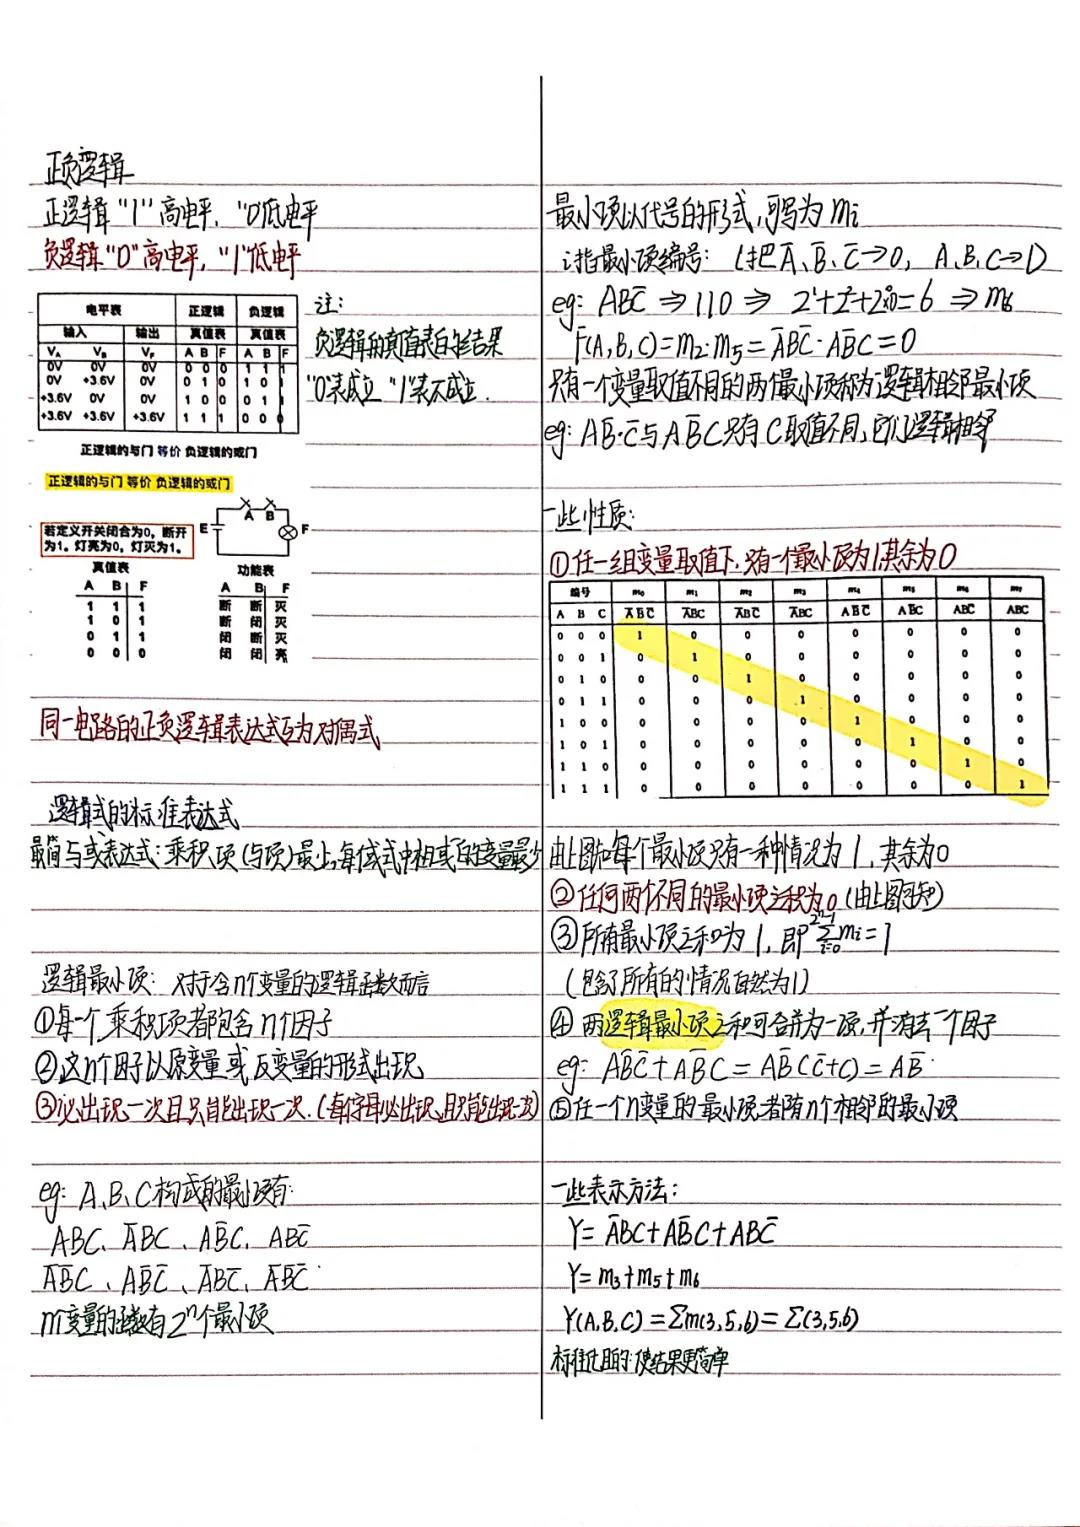 正负逻辑
正逻辑 "1" 高电平, "0低电平
负逻辑 "0" 高电平, "1"低电平
电平表 正逻辑 负逻辑
输入 输出 真值表 真值表
VA VB VF A B F A B F
0V 0V 0V 0 0 0 1 1 1
0V +3.6V 0V 0 1 0 1 0 1
+3.6V 0V 0V 1 0 0 0 1 1
+3.6V +3.6V +3.6V 1 1 1 0 0 0
注:
负逻辑的真值表的结果
"0"表成立 "1"表不成立.
正逻辑的与门 等价 负逻辑的或门
正逻辑的与门 等价 负逻辑的或门
若定义开关闭合为0,断开
为1。灯亮为0,灯灭为1。
E A B F
真值表
A B F
1 1 1
1 0 1
0 1 1
0 0 0
功能表
A B F
断 断 灭
断 闭 灭
闭 断 灭
闭 闭 亮
同一电路的正负逻辑表达式互为对偶式
逻辑式的标准表达式
最简与或表达式:乘积项(与项)最少,每个式中相或的变量最少
逻辑最小项: 对于含n个变量的逻辑函数而言
①每一个乘积项都包含n个因子
②这n个因子以原变量或反变量的形式出现
③必出现一次且只能出现一次.(每字母必出现,且只能出现一次)
eg: A、B、C构成的最小项有:
ABC、A̅BC、AB̅C、ABC̅
A̅B̅C、AB̅C̅、A̅BC̅、A̅B̅C̅
n个变量的函数有2ⁿ个最小项
最小项以代号的形式,可写为mi
i指最小项编号: (把A̅、B̅、C̅→0, A、B、C→1)
eg: ABC̅ ⇒ 110 ⇒ 2¹+2²+2×0=6 ⇒ m6
F(A,B,C)=m2·m5=A̅BC̅·AB̅C=0
只有一个变量取值不同的两个最小项称为逻辑相邻最小项
eg: AB̅·C̅与AB̅C只有C取值不同,它们逻辑相邻
一些性质:
①任一组变量取值下,只有一个最小项为1,其余为0
编号 m₀ m₁ m₂ m₃ m₄ m₅ m₆ m₇
A B C A̅B̅C̅ A̅B̅C A̅BC̅ A̅BC AB̅C̅ AB̅C ABC̅ ABC
0 0 0 1 0 0 0 0 0 0 0
0 0 1 0 1 0 0 0 0 0 0
0 1 0 0 0 1 0 0 0 0 0
0 1 1 0 0 0 1 0 0 0 0
1 0 0 0 0 0 0 1 0 0 0
1 0 1 0 0 0 0 0 1 0 0
1 1 0 0 0 0 0 0 0 1 0
1 1 1 0 0 0 0 0 0 0 1
由上图知每个最小项只有一种情况为1,其余为0
②任何两个不同的最小项之积为0(由上图可知)
③所有最小项之和为1,即∑mi=1 (i=0, 2ⁿ-1)
(包含了所有的情况自然为1)
④两逻辑最小项之和可合并为一项,并消去一个因子
eg: AB̅C̅+AB̅C=AB̅(C̅+C)=AB̅
⑤任一个n变量的最小项,都有n个相邻的最小项
一些表示方法:
Y=A̅BC+AB̅C+ABC̅
Y=m3+m5+m6
Y(A,B,C)=∑m(3,5,6)=∑(3,5,6)
标准化目的:使结果更简单